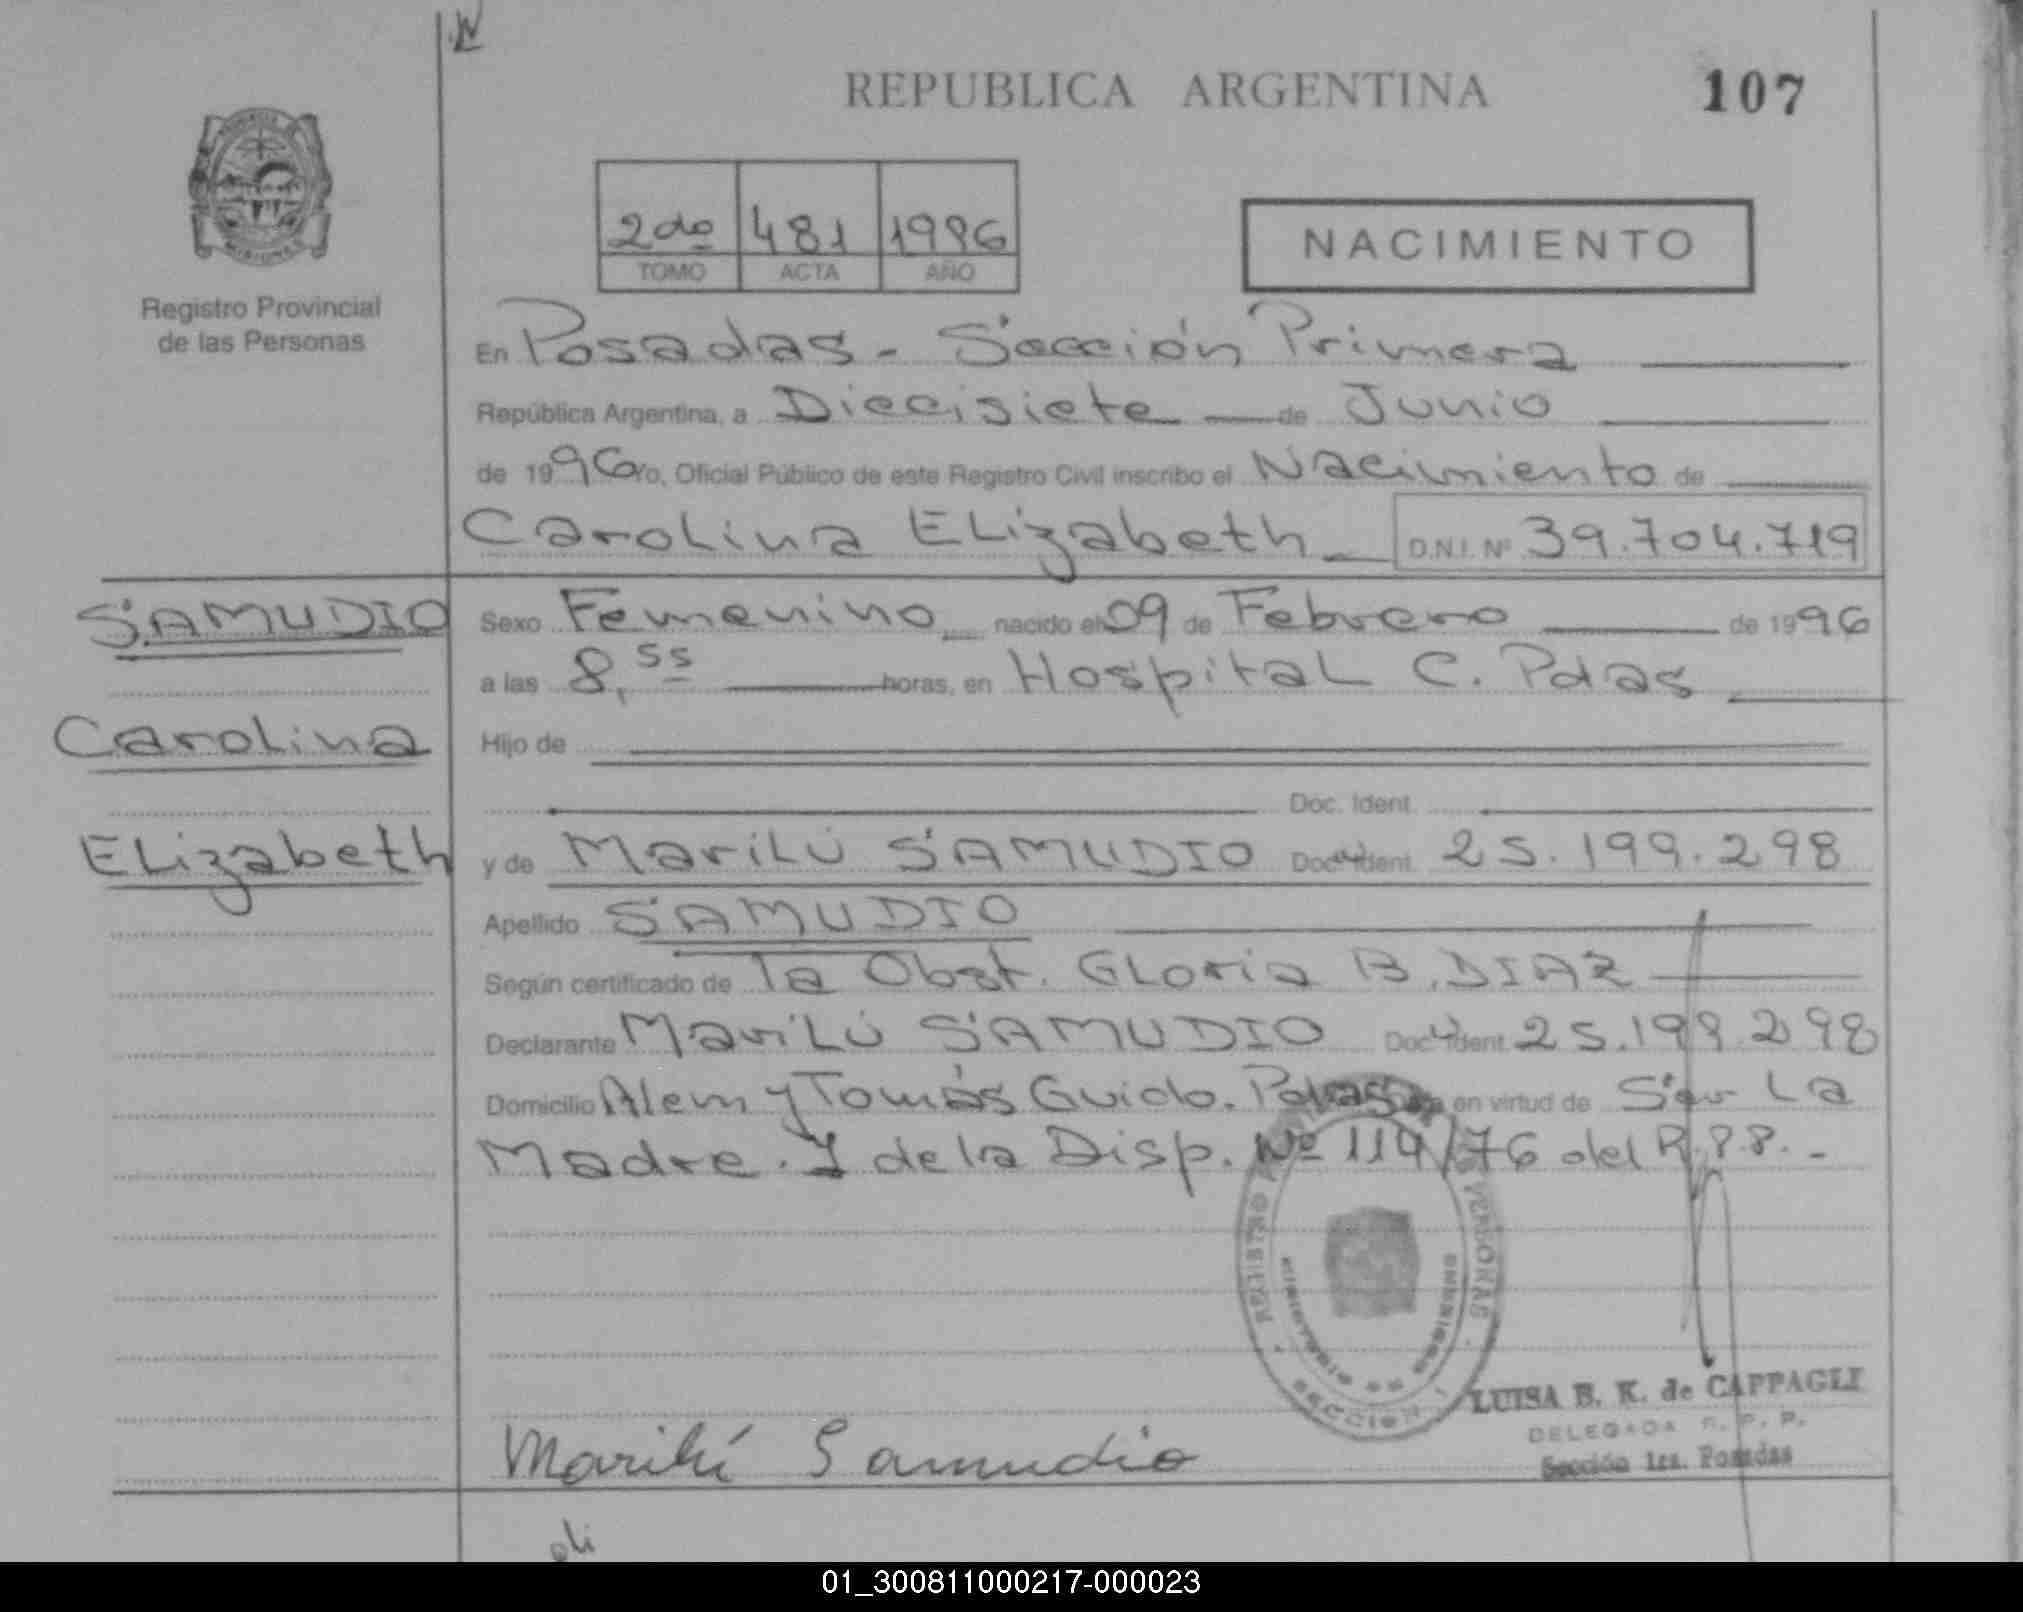 REPUBLICA ARGENTINA
107
2do 481 1996
TOMO ACTA AÑO
NACIMIENTO
Registro Provincial
de las Personas
En Posadas - Sección Primera
República Argentina, a Diecisiete de Junio
de 1996 Yo, Oficial Público de este Registro Civil inscribo el Nacimiento de
Carolina ELizabeth D.N.I. Nº 39.704.719
SAMUDIO
Carolina
ELizabeth
Sexo Femenino nacido el 09 de Febrero de 1996
a las 8,55 horas, en HospitaL C. Pdas
Hijo de
Doc. Ident.
y de MariLú SAMUDIO Doc. Ident. 25.199.298
Apellido SAMUDIO
Según certificado de la Obst. GLoria B. DIAZ
Declarante MariLú SAMUDIO Doc. Ident. 25.199.298
Domicilio Alem y Tomás Guido. Pdas en virtud de Ser La
Madre. Y de la Disp. Nº 114/76 del R.P.P. -
REGISTRO PERSONAS
MINISTERIO DE GOBIERNO
SECCION 1
LUISA B. K. de CAPPAGLI
DELEGADA R. P. P.
Sección 1ra. Posadas
Marilú Samudio
oli
01_300811000217-000023